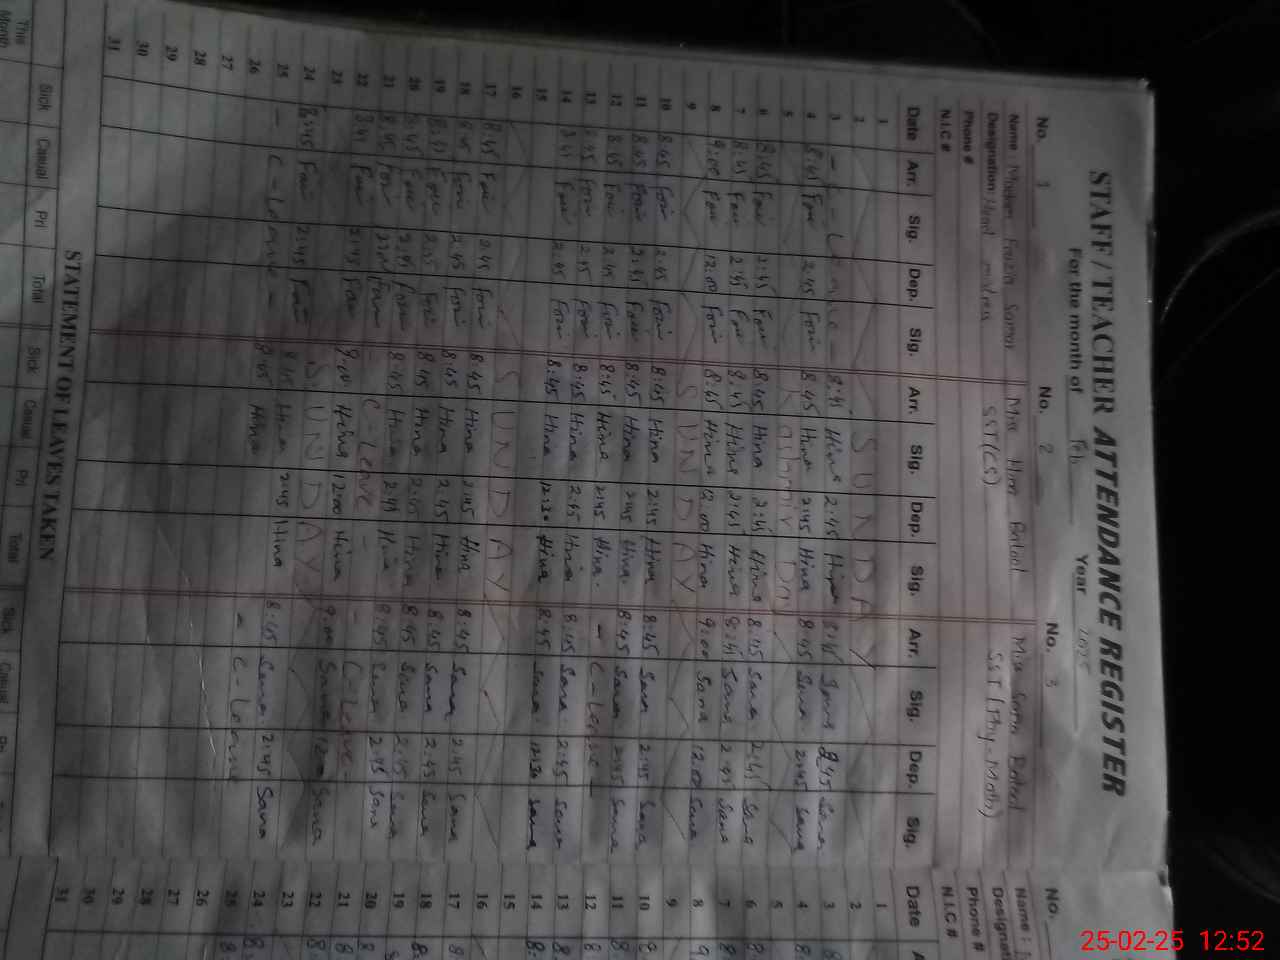 STAFF / TEACHER ATTENDANCE REGISTER
For the month of Feb Year 2025
No. 1 No. 2 No. 3 No.
Name : Madam Fouzia Miss Hina Batool Miss Sana Name :
Designation Head SST(CS) SST (Phy-Math) Designati
Phone # Phone #
N.I.C # N.I.C #
Date Arr. Sig. Dep. Sig. Arr. Sig. Dep. Sig. Arr. Sig. Dep. Sig. Date
1 1
2 SUNDAY 2
3 - C - Leave - 8:45 Hina 2:45 Hina 8:45 Sana 2:45 Sana 3
4 8:45 Fozi 2:45 Fozi 8:45 Hina 2:45 Hina 8:45 Sana 2:45 Sana 4
5 Kashmir Day 5
6 8:45 Fozi 2:45 Fozi 8:45 Hina 2:45 Hina 8:45 Sana 2:45 Sana 6
7 8:45 Fozi 2:45 Fozi 8:45 Hina 2:45 Hina 8:45 Sana 2:45 Sana 7
8 9:00 Fozi 12:00 Fozi 8:45 Hina 12:00 Hina 9:00 Sana 12:00 Sana 8
9 SUNDAY 9
10 8:45 Fozi 2:45 Fozi 8:45 Hina 2:45 Hina 8:45 Sana 2:45 Sana 10
11 8:45 Fozi 2:45 Fozi 8:45 Hina 2:45 Hina 8:45 Sana 2:45 Sana 11
12 8:45 Fozi 2:45 Fozi 8:45 Hina 2:45 Hina - C - Leave - 12
13 8:45 Fozi 2:45 Fozi 8:45 Hina 2:45 Hina 8:45 Sana 2:45 Sana 13
14 8:45 Fozi 2:45 Fozi 8:45 Hina 12:30 Hina 8:45 Sana 12:30 Sana 14
15 15
16 SUNDAY 16
17 8:45 Fozi 2:45 Fozi 8:45 Hina 2:45 Hina 8:45 Sana 2:45 Sana 17
18 8:45 Fozi 2:45 Fozi 8:45 Hina 2:45 Hina 8:45 Sana 2:45 Sana 18
19 8:45 Fozi 2:45 Fozi 8:45 Hina 2:45 Hina 8:45 Sana 2:45 Sana 19
20 8:45 Fozi 2:45 Fozi 8:45 Hina 2:45 Hina 8:45 Sana 2:45 Sana 20
21 8:45 Fozi Fozi - C - Leave - - C - Leave - 21
22 Fozi 2:45 Fozi 9:00 Hina 12:00 Hina 9:00 Sana 12 Sana 22
23 SUNDAY 23
24 8:45 Fozi 2:45 Fozi 8:45 Hina 2:45 Hina 8:45 Sana 2:45 Sana 24
25 - C - Leave - 8:45 Hina - C - Leave 25
26 26
27 27
28 28
29 29
30 30
31 31
STATEMENT OF LEAVES TAKEN
Sick Casual Pri Total Sick Casual Pri Total Sick Casual
This Month
25-02-25 12:52